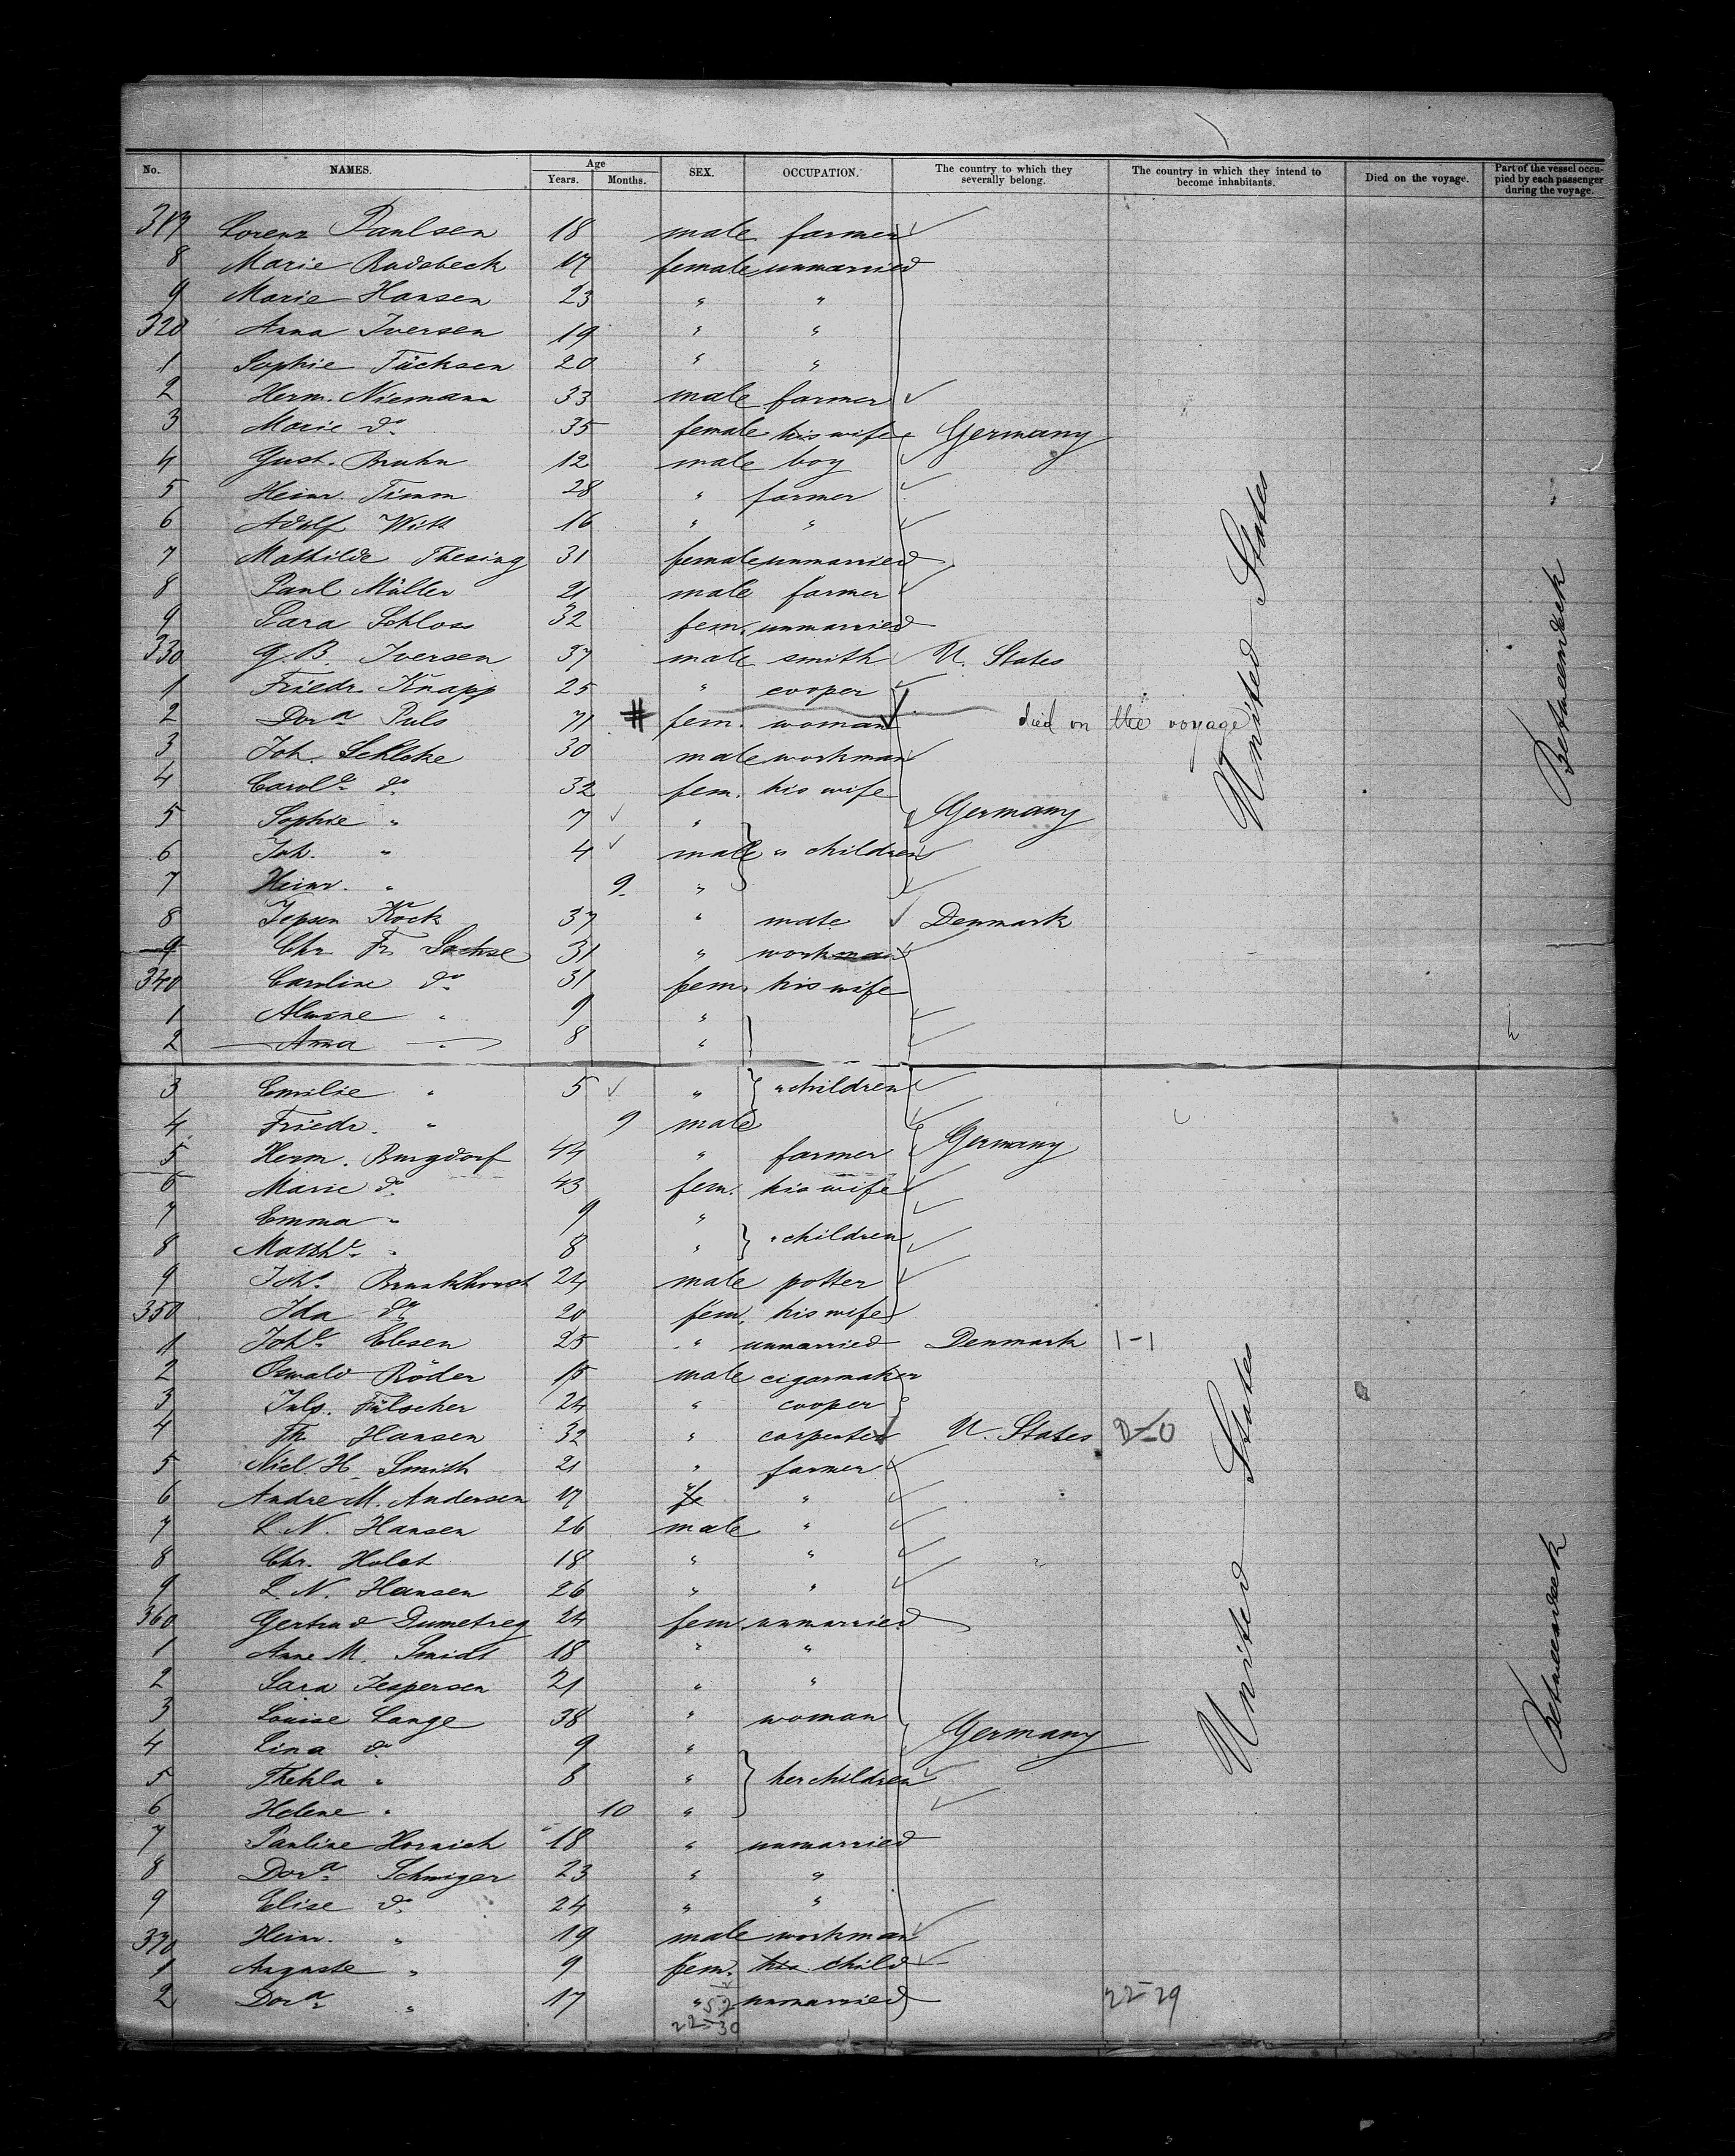 No. NAMES. Age Years. Months. SEX. OCCUPATION. The country to which they severally belong. The country in which they intend to become inhabitants. Died on the voyage. Part of the vessel occupied by each passenger during the voyage.
317 Lorenz Paulsen 18 male farmer
8 Marie Radsbeck 17 female unmarried
9 Marie Hansen 23 " "
320 Anna Iversen 19 " "
1 Sophie Füchsen 20 " "
2 Herm. Niemann 33 male farmer
3 Marie do 35 female his wife Germany
4 Gust. Bruhn 12 male boy
5 Heinr. Timm 28 " farmer
6 Adolf Witt 16 " "
7 Mathilde Thesing 31 female unmarried
8 Paul Möller 21 male farmer
9 Sara Schloss 32 fem. unmarried
330 G. B. Iversen 37 male smith U. States
1 Friedr. Knapp 25 " cooper
2 Dora Puls 71 # fem. woman died on the voyage
3 Joh. Schloke 30 male workman
4 Carole do 32 fem. his wife
5 Sophie " 7 " Germany
6 Joh. " 4 male " children
7 Heinr. " 9 "
8 Jepsen Kock 37 " mate Denmark
9 Chr. Fr. Sachse 31 " workman
340 Caroline do 31 fem. his wife
1 Alwine " 9 "
2 Anna " 8 "
3 Emilie " 5 " " children
4 Friedr. " 9 male
5 Herm. Burgdorf 44 " farmer Germany
6 Marie do 43 fem. his wife
7 Emma " 9 "
8 Mathe " 8 " " children
9 Johs 24 male potter
350 Ida do 20 fem. his wife
1 Johe Ebsen 25 " unmarried Denmark 1-1
2 Oswald Röder 15 male cigarmaker
3 Juls. Fülscher 24 " cooper
4 Th. Hansen 32 " carpenter U. States 2-0
5 Nicl. H. Smith 21 " farmer
6 Andre M. Andersen 17 fe " "
7 L. N. Hansen 26 male "
8 Chr. Holst 18 " "
9 L. N. Hansen 26 " "
360 Gertrud Dumetreg 24 fem. unmarried
1 Anne M. Smidt 18 " "
2 Sara Jespersen 21 " "
3 Louise Lange 38 " woman Germany
4 Lina do 9 "
5 Thekla " 8 " her children
6 Helene " 10 "
7 Pauline Hornich 18 " unmarried
8 Dora Schwiger 23 " "
9 Elise do 24 " "
370 Heinr. " 19 male workman
1 Auguste " 9 fem. his child
2 Dora " 17 " unmarried 22-29
52
22-30
United States
Betweendeck
United States
Betweendeck